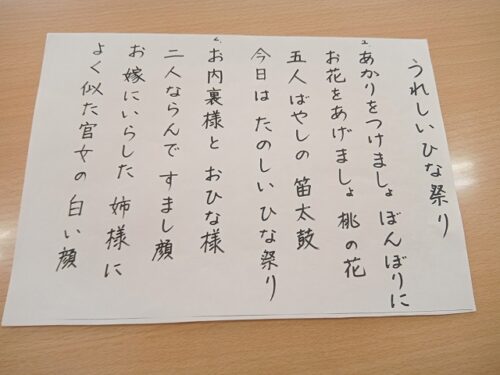 うれしいひな祭り
1. あかりをつけましょ ぼんぼりに
お花をあげましょ 桃の花
五人ばやしの 笛太鼓
今日は たのしい ひな祭り
2. お内裏様と おひな様
二人ならんで すまし顔
お嫁にいらした 姉様に
よく似た官女の 白い顔